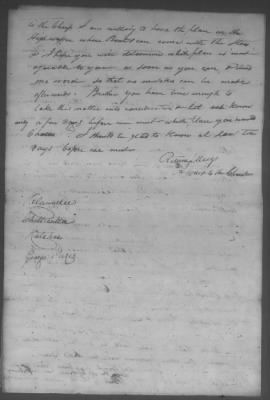 to the Chiefs I am willing to have the place on the
Highwassee where Boats can come with the Stores
So I hope you will determine which place is most
agreeable to you as soon as you can, & send
me word so that no mistakes can be made
afterwards. Brothers you have time enough to
take this matter into consideration & let me know
only a few days before we meet which place you would
choose. I should be glad to know at least ten
days before we meet
Return J Meigs
A Wars to the
Kelachulee
Will
Katahee
George